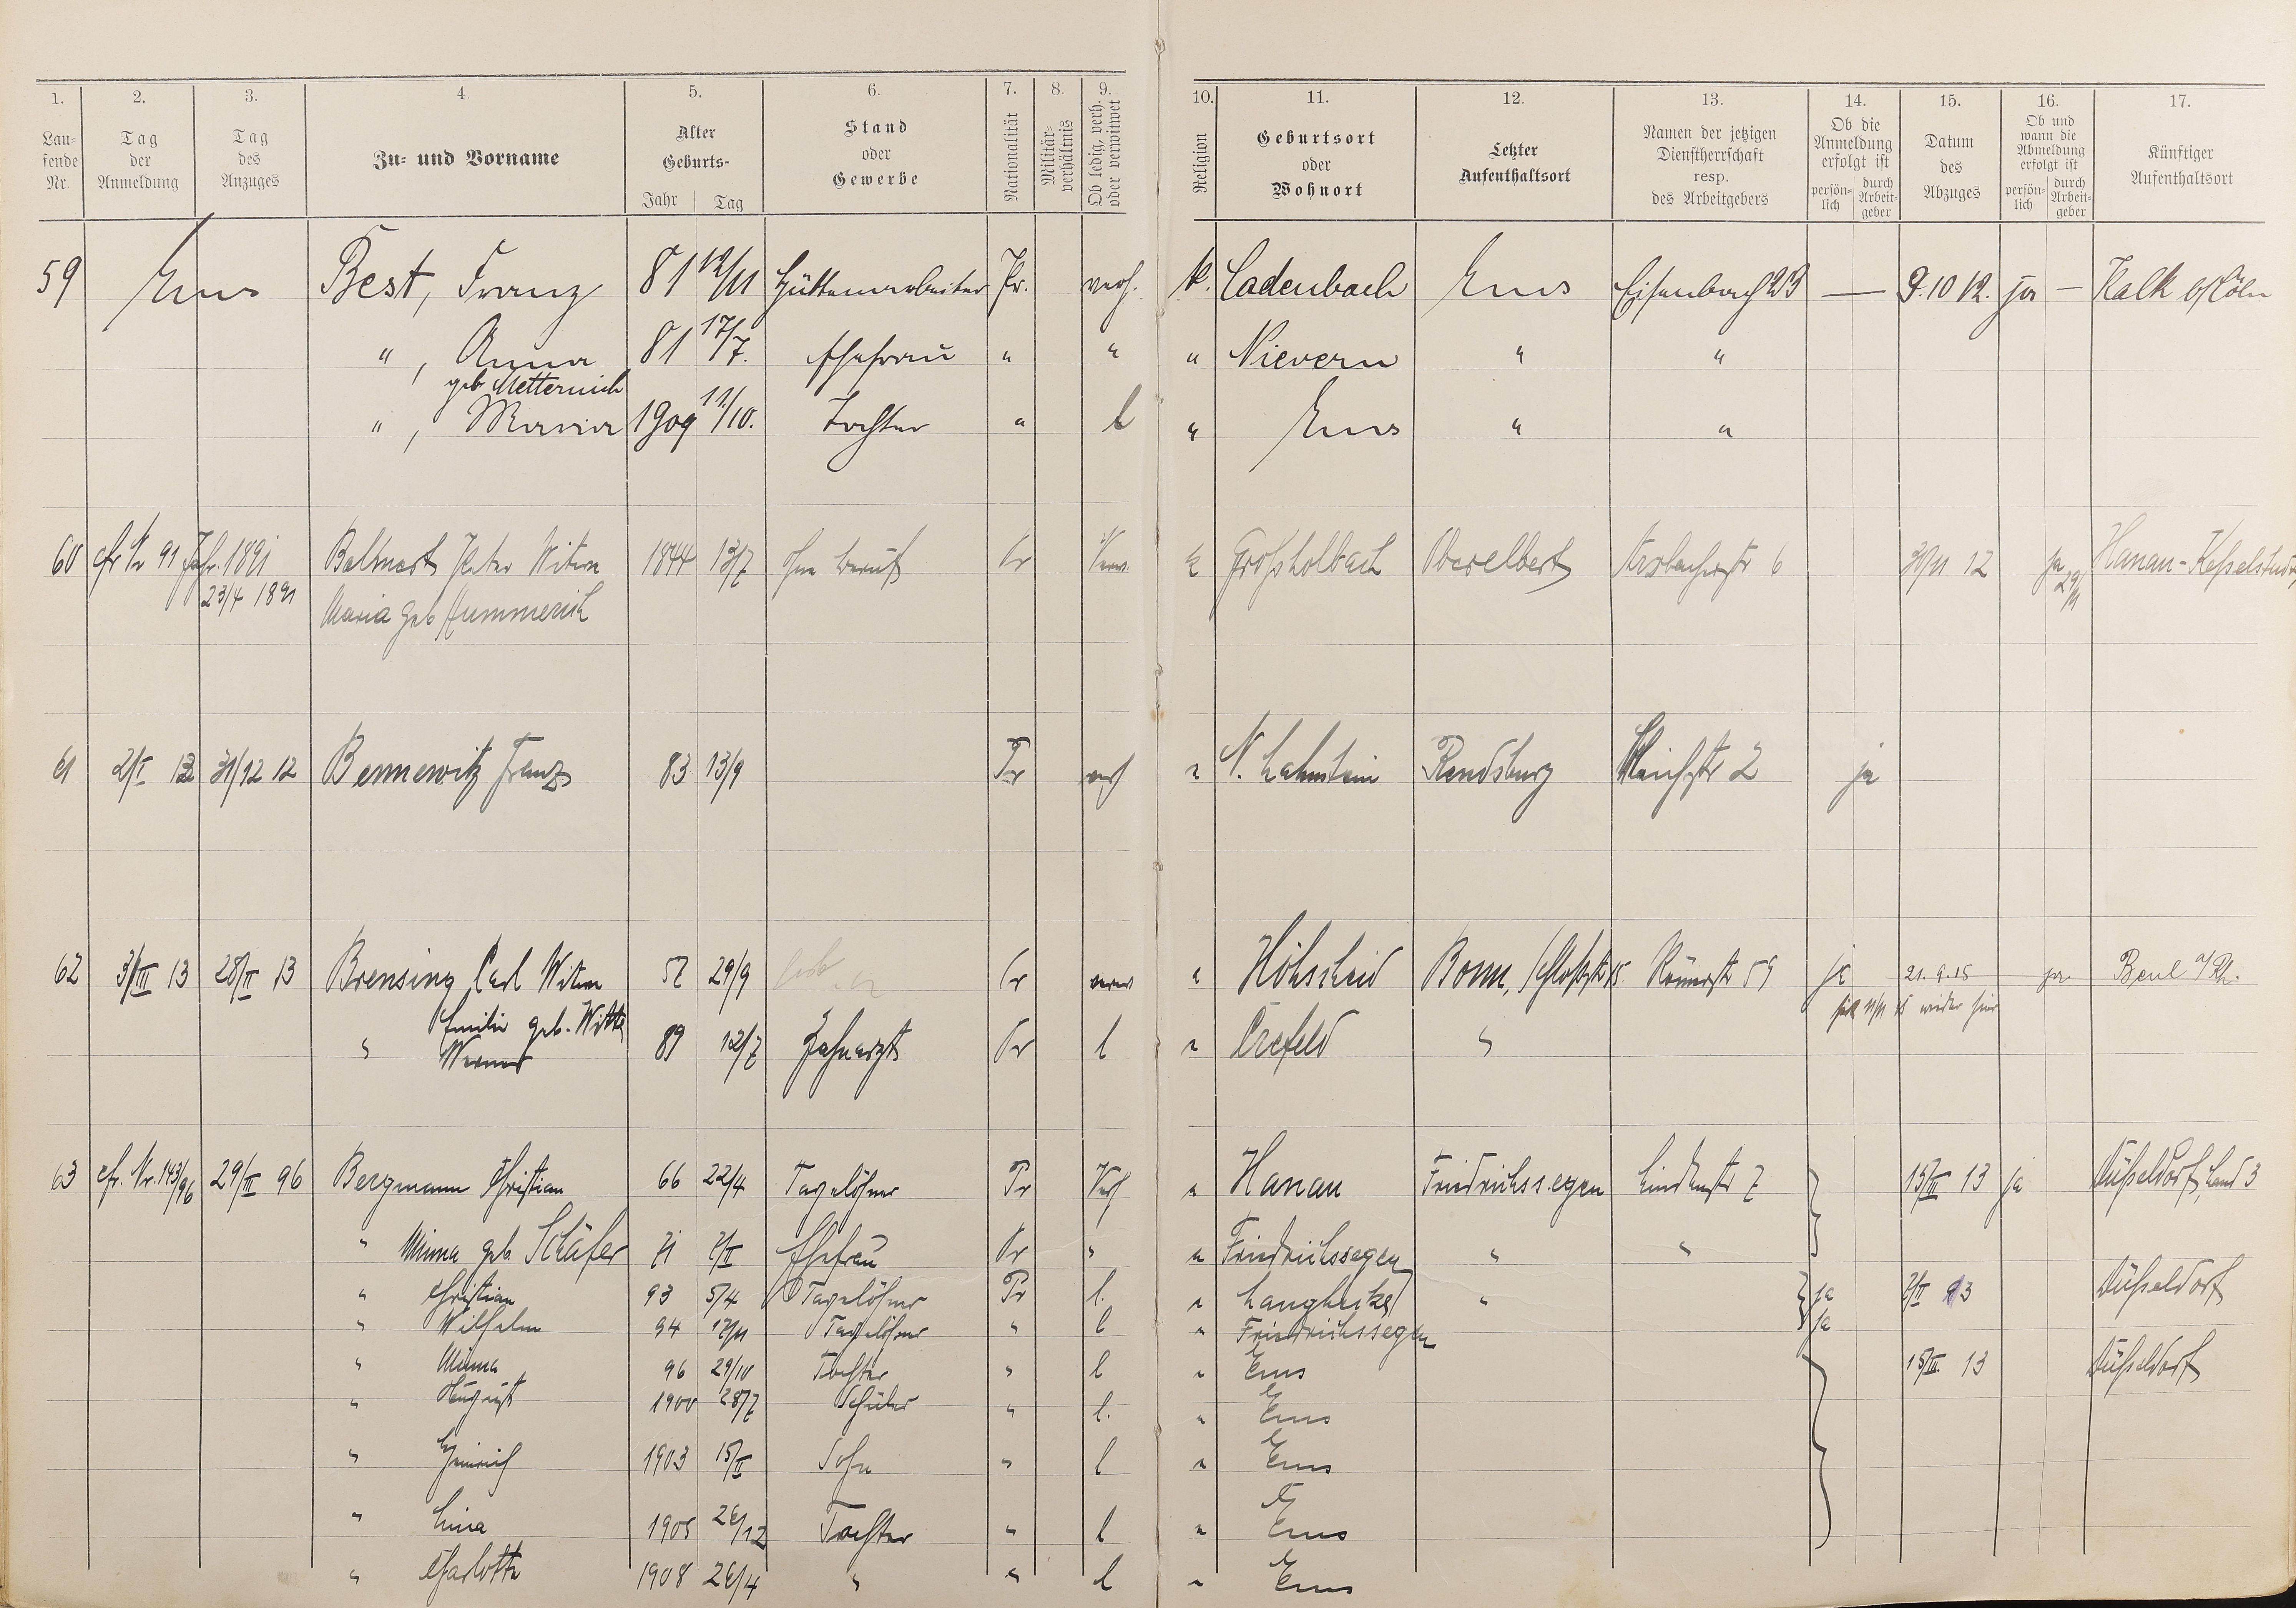 1. 2. 3. 4. 5. 6. 7. 8. 9. 10. 11. 12. 13. 14. 15. 16. 17.
Lau-
fende
Nr.
Tag
der
Anmeldung
Tag
des
Anzuges
Zu- und Vorname
Alter
Geburts-
Jahr Tag
Stand
oder
Gewerbe
Nationalität
Militär-
verhältnis
Ob ledig, verh.
oder verwitwet
Religion
Geburtsort
oder
Wohnort
Letzter
Aufenthaltsort
Namen der jetzigen
Dienstherrschaft
resp.
des Arbeitgebers
Ob die
Anmeldung
erfolgt ist
persön-
lich
durch
Arbeit-
geber
Datum
des
Abzuges
Ob und
wann die
Abmeldung
erfolgt ist
persön-
lich
durch
Arbeit-
geber
Künftiger
Aufenthaltsort
59 Ems Best, Franz 81 12/11 Hüttenarbeiter Pr. verh. k. Cadenbach Ems Eisenbach 23 — 9.10 12. ja — Kalk b/Cöln
" , Anna 81 17/7. Ehefrau " " " Nievern " "
geb. Metternich
" , Maria 1909 11./10. Tochter " l " Ems " "
60 cfr Nr 91 Jahr. 1891 Peter Witwe 1844 13/7 ohne Beruf Pr Verw. k Großholbach Oberelbert Arzbacherstr 6 30/11 12 ja 29/11 Hanau-Kesselstadt
23/4 1891 Maria geb Hummerich
61 2/I 13 31/12 12 Bennewitz Franz 83 13/9 Pr verh " N. Lahnstein Rendsburg 2 ja
62 3/III 13 28/II 13 Brensing Carl Witwe 52 29/9 Pr verw " Höhscheid Bonn, Schloßstr 15. Römerstr 59 ja 21.9.15 ja Beul a/Rh.
Emilie geb. Witte 11/11 15 wieder hier
" Werner 89 12/7 Zahnarzt Pr l " Crefeld "
63 cfr. Nr. 143/96 29/II 96 Bergmann Christian 66 22/4 Tagelöhner Pr Verh " Hanau Friedrichssegen Lindenstr 7 15/III 13 ja Düßeldorf, 3
" Minna geb. Schäfer 71 2/II Ehefrau Pr " " Friedrichssegen " "
" Christian 93 5/4 Tagelöhner Pr l. " Langhecke " ja 2/II 13 Düßeldorf
" Wilhelm 94 12/11 Tagelöhner " l " Friedrichssegen ja
" Minna 96 29/10 Tochter " l " Ems 15/III. 13 Düßeldorf
" August 1900 28/7 Schüler " l. " Ems
" Heinrich 1903 15/II Sohn " l " Ems
" Lina 1905 26/12 Tochter " l " Ems
" Charlotte 1908 26/4 " " l " Ems